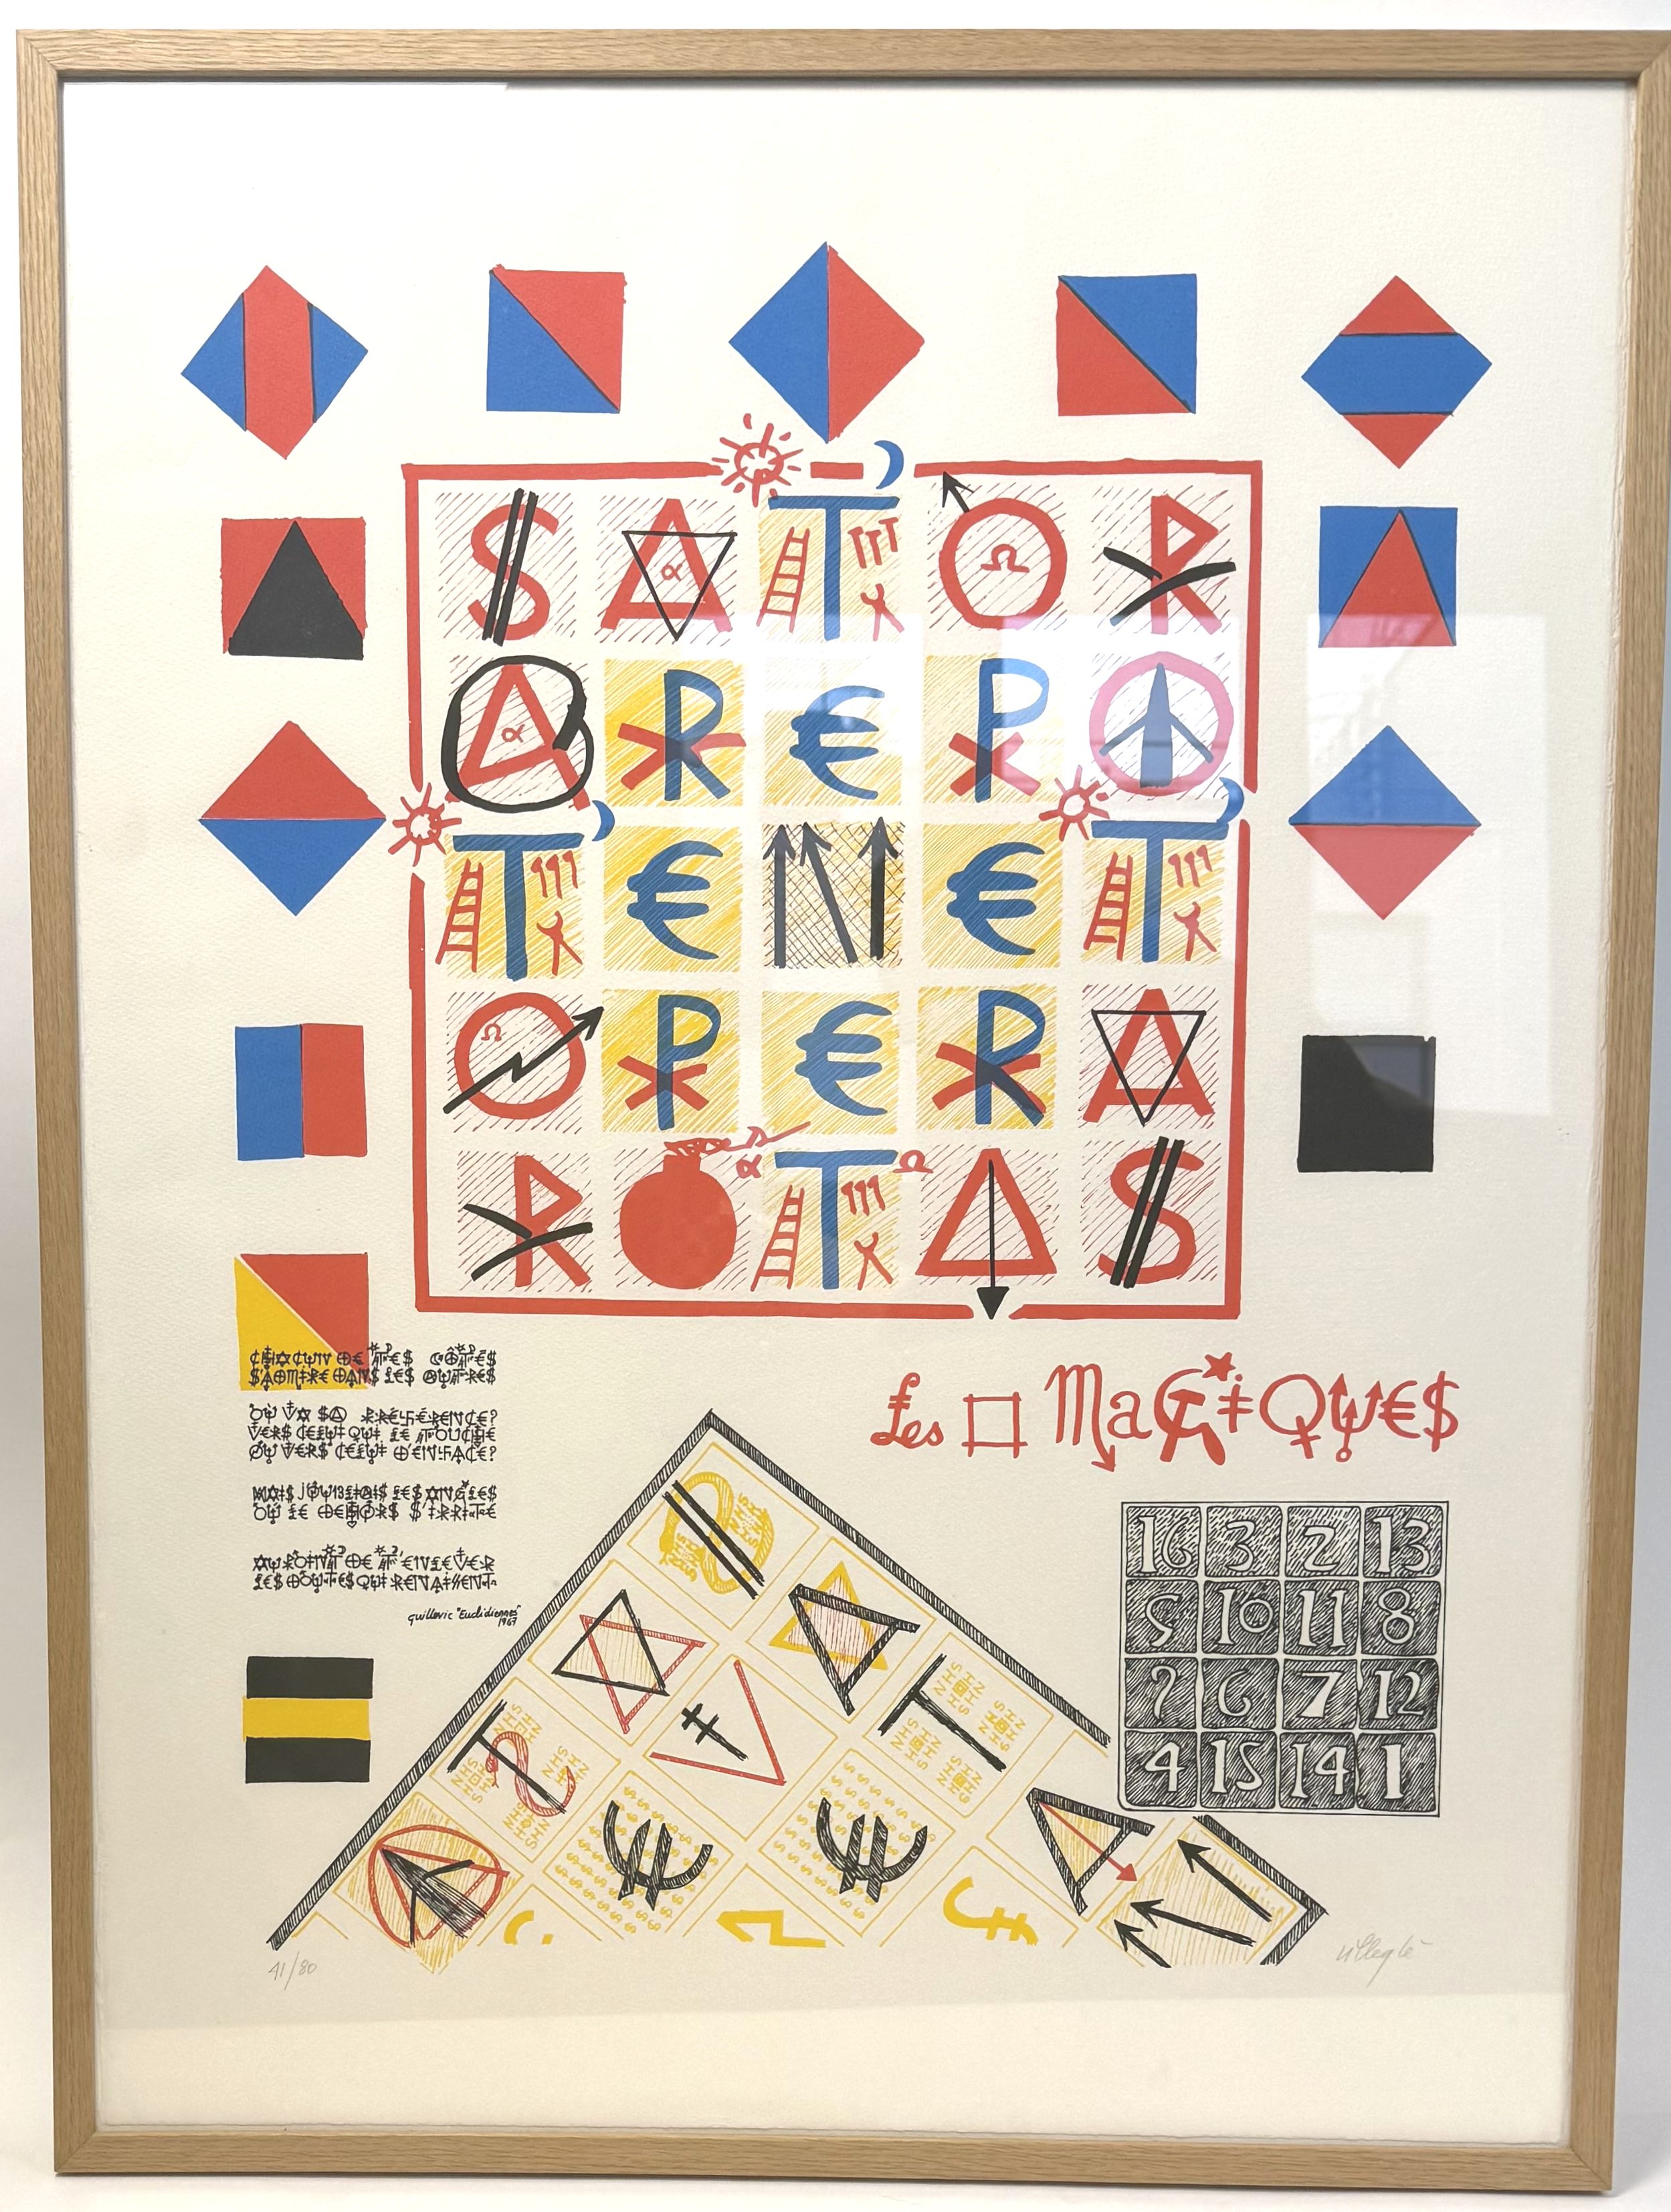 SATOR
AREPO
TENET
OPERA
ROTAS
CHACUN DE TES CÔTÉS
S'ADMIRE DANS LES AUTRES
OÙ VA SA PRÉFÉRENCE?
VERS CELUI QUI LE TOUCHE
OU VERS CELUI D'EN FACE?
MAIS J'OUBLIAIS LES ANGLES
OÙ LE DEHORS S'IRRITE
AU POINT DE T'ENLEVER
LES DOUTES QUI RENAISSENT.
guillevic "Euclidiennes"
1967
Les □ MaGiQUES
16 3 2 13
5 10 11 8
9 6 7 12
4 15 14 1
41/80
Villeglé